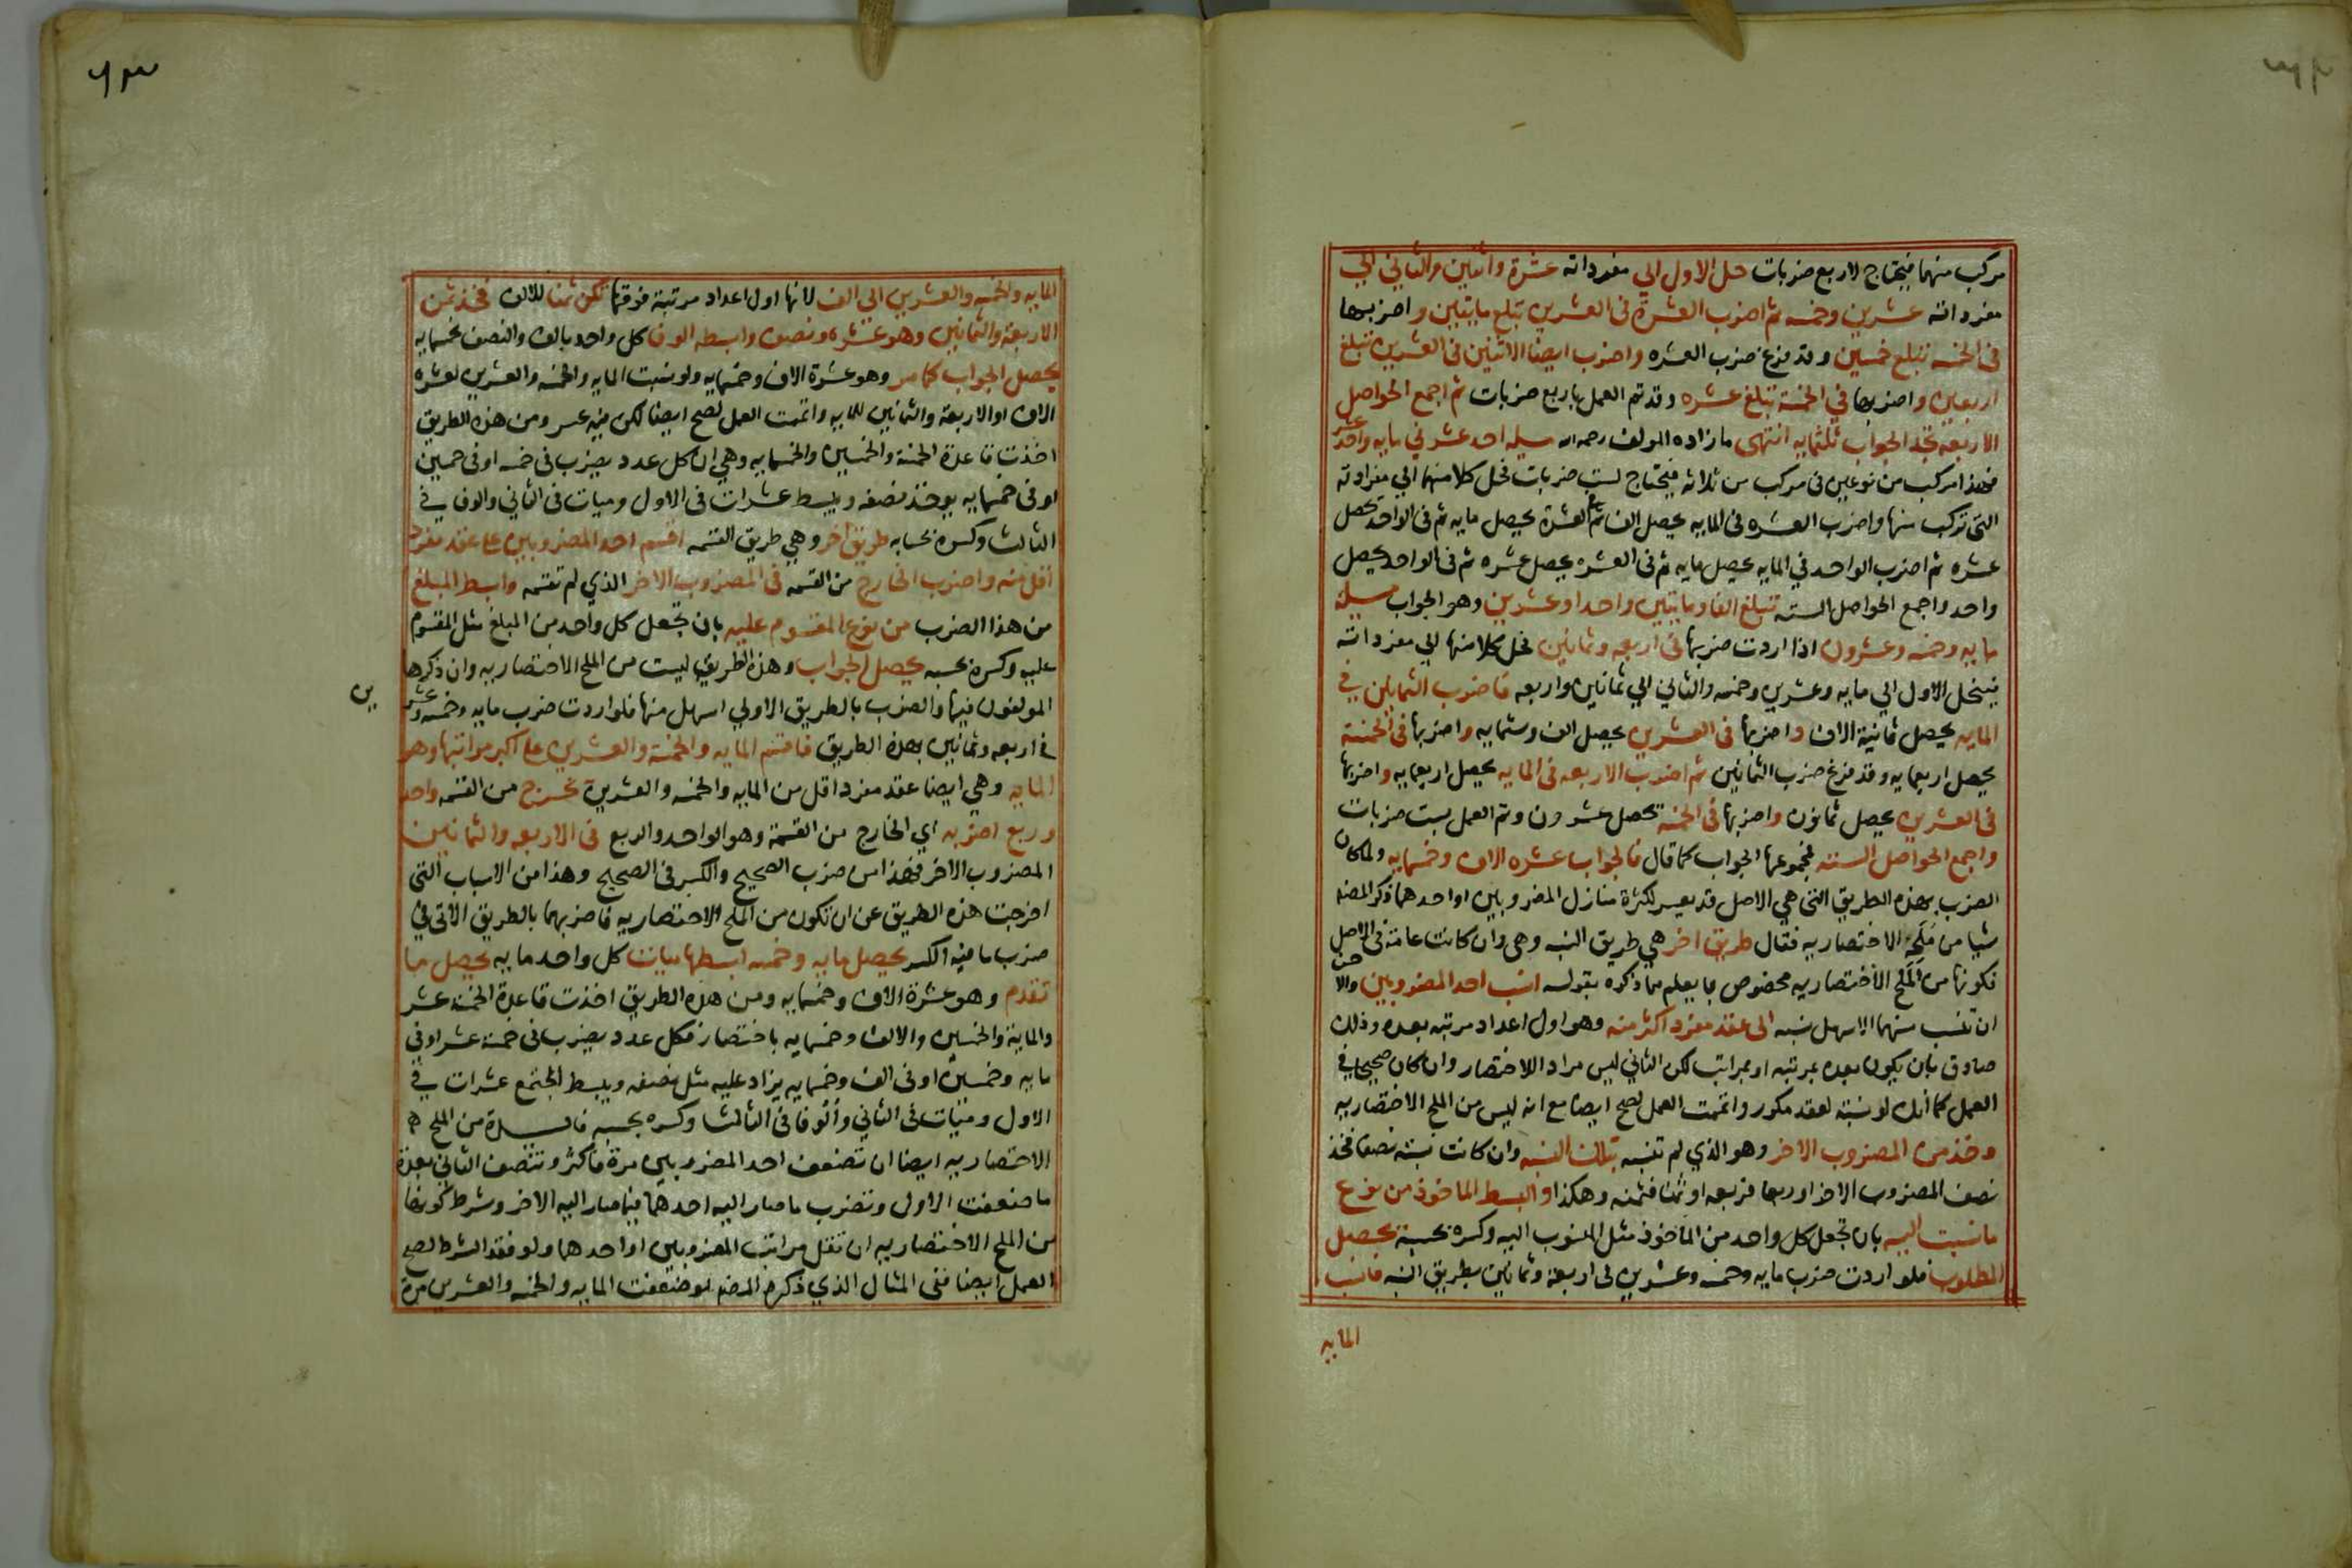 مركب منهما فيحتاج لاربع ضربات حل الاول الي مفرداته عشرة واثنين والثاني الي
مفرداته عشرين وخمسه ثم اضرب العشرة في العشرين تبلغ مايتين واضربها
في الخمسه تبلغ خمسين وقد فرغ ضرب العشره واضرب ايضا الاثنين في العشرين تبلغ
اربعين واضربها في الخمسة تبلغ عشره وقد تم العمل باربع ضربات ثم اجمع الحواصل
الاربعه تجد الجواب ثلثمايه انتهى ما زاده المولف رحمه الله مسيله احد عشر في مايه واحد عشر
فهذا مركب من نوعين في مركب من ثلاثه فيحتاج لست ضربات فحل كلا منهما الي مفرداته
التي تركب منها واضرب العشره في المايه يحصل الف ثم في العشرة يحصل مايه ثم في الواحد تحصل
عشره ثم اضرب الواحد في المايه يحصل مايه ثم في العشره يحصل عشره ثم في الواحد يحصل
واحد واجمع الحواصل السته تبلغ الفا ومايتين واحدا وعشرين وهو الجواب مسيلة
مايه وخمسه وعشرون اذا اردت ضربها في اربعه وثمانين فحل كلا منها الي مفرداته
فينحل الاول الي مايه وعشرين وخمسه والثاني الي ثمانين واربعه فاضرب الثمانين في
المايه يحصل ثمانية الاف واضربها في العشرين يحصل الف وستمايه واضربها في الخمسة
يحصل اربعمايه وقد فرغ ضرب الثمانين ثم اضرب الاربعه في المايه يحصل اربعمايه واضربها
في العشرين يحصل ثمانون واضربها في الخمسه تحصل عشرون وتم العمل بست ضربات
واجمع الحواصل السته فمجموعها الجواب كما قال فالجواب عشره الاف وخمسمايه ولما كان
الضرب بهذه الطريق التي هي الاصل قد يعسر لكثرة منازل المضروبين او احدهما ذكر المصنف
شيا من ملحه الاختصاريه فقال طريق اخر هي طريق النسبه وهي وان كانت عامة في الاصل
فكونها من الملح الاختصاريه مخصوص بما يعلم مما ذكره بقوله انسب احد المضروبين والاحسن
ان تنسب منهما الاسهل نسبه الى عقد مفرد اكثر منه وهو اول اعداد مرتبه بعده وذلك
صادق بان يكون بعده بمرتبه او بمراتب لكن الثاني ليس مرادا للاختصار وان كان صحيحا في
العمل كما انك لو نسبته لعقد مكور واتممت العمل لصح ايضا مع انه ليس من الملح الاختصاريه
وخذ من المضروب الاخر وهو الذي لم تنسبه بتلك النسبه وان كانت نسبته نصفا فخذ
نصف المضروب الاخر او ربعا فربعه او ثمنا فثمنه وهكذا وابسط الماخوذ من نوع
ما نسبت اليه بان تجعل كل واحد من الماخوذ مثل المنسوب اليه وكسره بحسبه يحصل
المطلوب فلو اردت ضرب مايه وخمسه وعشرين في اربعة وثمانين بطريق النسبه فانسب
المايه
المايه والخمسه والعشرين الي الف لانها اول اعداد مرتبة فوقها تكن ثمنا للالف فخذ ثمن
الاربعة والثمانين وهو عشره ونصف وابسطه الوف كل واحد بالف والنصف بخمسمايه
يحصل الجواب كما مر وهو عشرة الاف وخمسمايه ولو نسبت المايه والخمسه والعشرين لعشره
الاف او الاربعة والثمانين للمايه واتممت العمل لصح ايضا لكن فيه عسر ومن هذه الطريق
اخذت قاعدة الخمسة والخمسين والخمسمايه وهي ان كل عدد يضرب في خمسه او في خمسين
او في خمسمايه يوخذ نصفه ويبسط عشرات في الاول وميات في الثاني والوف في
الثالث وكسره بحسابه طريق اخر وهي طريق القسمه اقسم احد المضروبين علي عقد مفرد
اقل منه واضرب الخارج من القسمه في المضروب الاخر الذي لم تقسمه وابسط المبلغ
من هذا الضرب من نوع المقسوم عليه بان تجعل كل واحد من المبلغ مثل المقسوم
عليه وكسره بحسبه يحصل الجواب وهذه الطريق ليست من الملح الاختصاريه وان ذكرها
المولفون فيها والضرب بالطريق الاولي اسهل منها فلو اردت ضرب مايه وخمسه وعشرين
في اربعه وثمانين بهذه الطريق فاقسم المايه والخمسة والعشرين علي اكبر مراتبها وهو
المايه وهي ايضا عقد مفرد اقل من المايه والخمسه والعشرين تخرج من القسمه واحد
وربع اضربه اي الخارج من القسمة وهو الواحد والربع في الاربعه والثمانين
المضروب الاخر فهذا من ضرب الصحيح والكسر في الصحيح وهذا من الاسباب التي
اخرجت هذه الطريق عن ان تكون من الملح الاختصاريه فاضربهما بالطريق الاتي في
ضرب ما فيه الكسر يحصل مايه وخمسه ابسطها ميات كل واحد مايه يحصل ما
تقدم وهو عشرة الاف وخمسمايه ومن هذه الطريق اخذت قاعدة الخمسة عشر
والماية والخمسين والالف وخمسمايه باختصار فكل عدد يضرب في خمسة عشر او في
مايه وخمسين او في الف وخمسمايه يزاد عليه مثل نصفه ويبسط المجتمع عشرات في
الاول وميات في الثاني والوفا في الثالث وكسره بحسبه فايدة من الملح
الاختصاريه ايضا ان تضعف احد المضروبين مرة فاكثر وتنصف الثاني بعدة
ما ضعفت الاول وتضرب ما صار اليه احدهما فيما صار اليه الاخر وشرط كونها
من الملح الاختصاريه ان تقل مراتب المضروبين او احدهما ولو فقد الشرط لصح
العمل ايضا ففي المثال الذي ذكره المصنف لو ضعفت المايه والخمسه والعشرين مرة